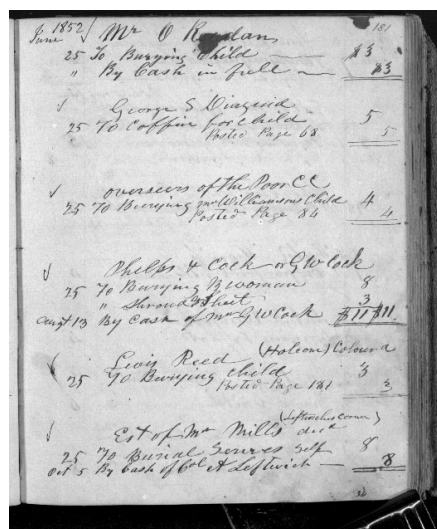 181
June 1852 Mr O Riordan
25 To Burying Child $3
" By Cash in full $3
George S
25 To Coffin for Child 5
Posted Page 68 5
overseers of the Poor CC
25 To Burying Mr Williamsons Child 4
Posted Page 84 4
Phelps & Cock or G W Cock
25 To Burying B woman 8
" Shroud & Sheet 3
Augt 13 By Cash of Mr G W Cock $11 $11
(Holcom) Coloured
Lewis Reed
25 To Burying Child 3
Posted Page 181 3
(Leftwiches Corner)
Est of Mr Mills decd
25 To Burial Serves Self 8
Oct 5 By Cash of Col A Leftwich 8